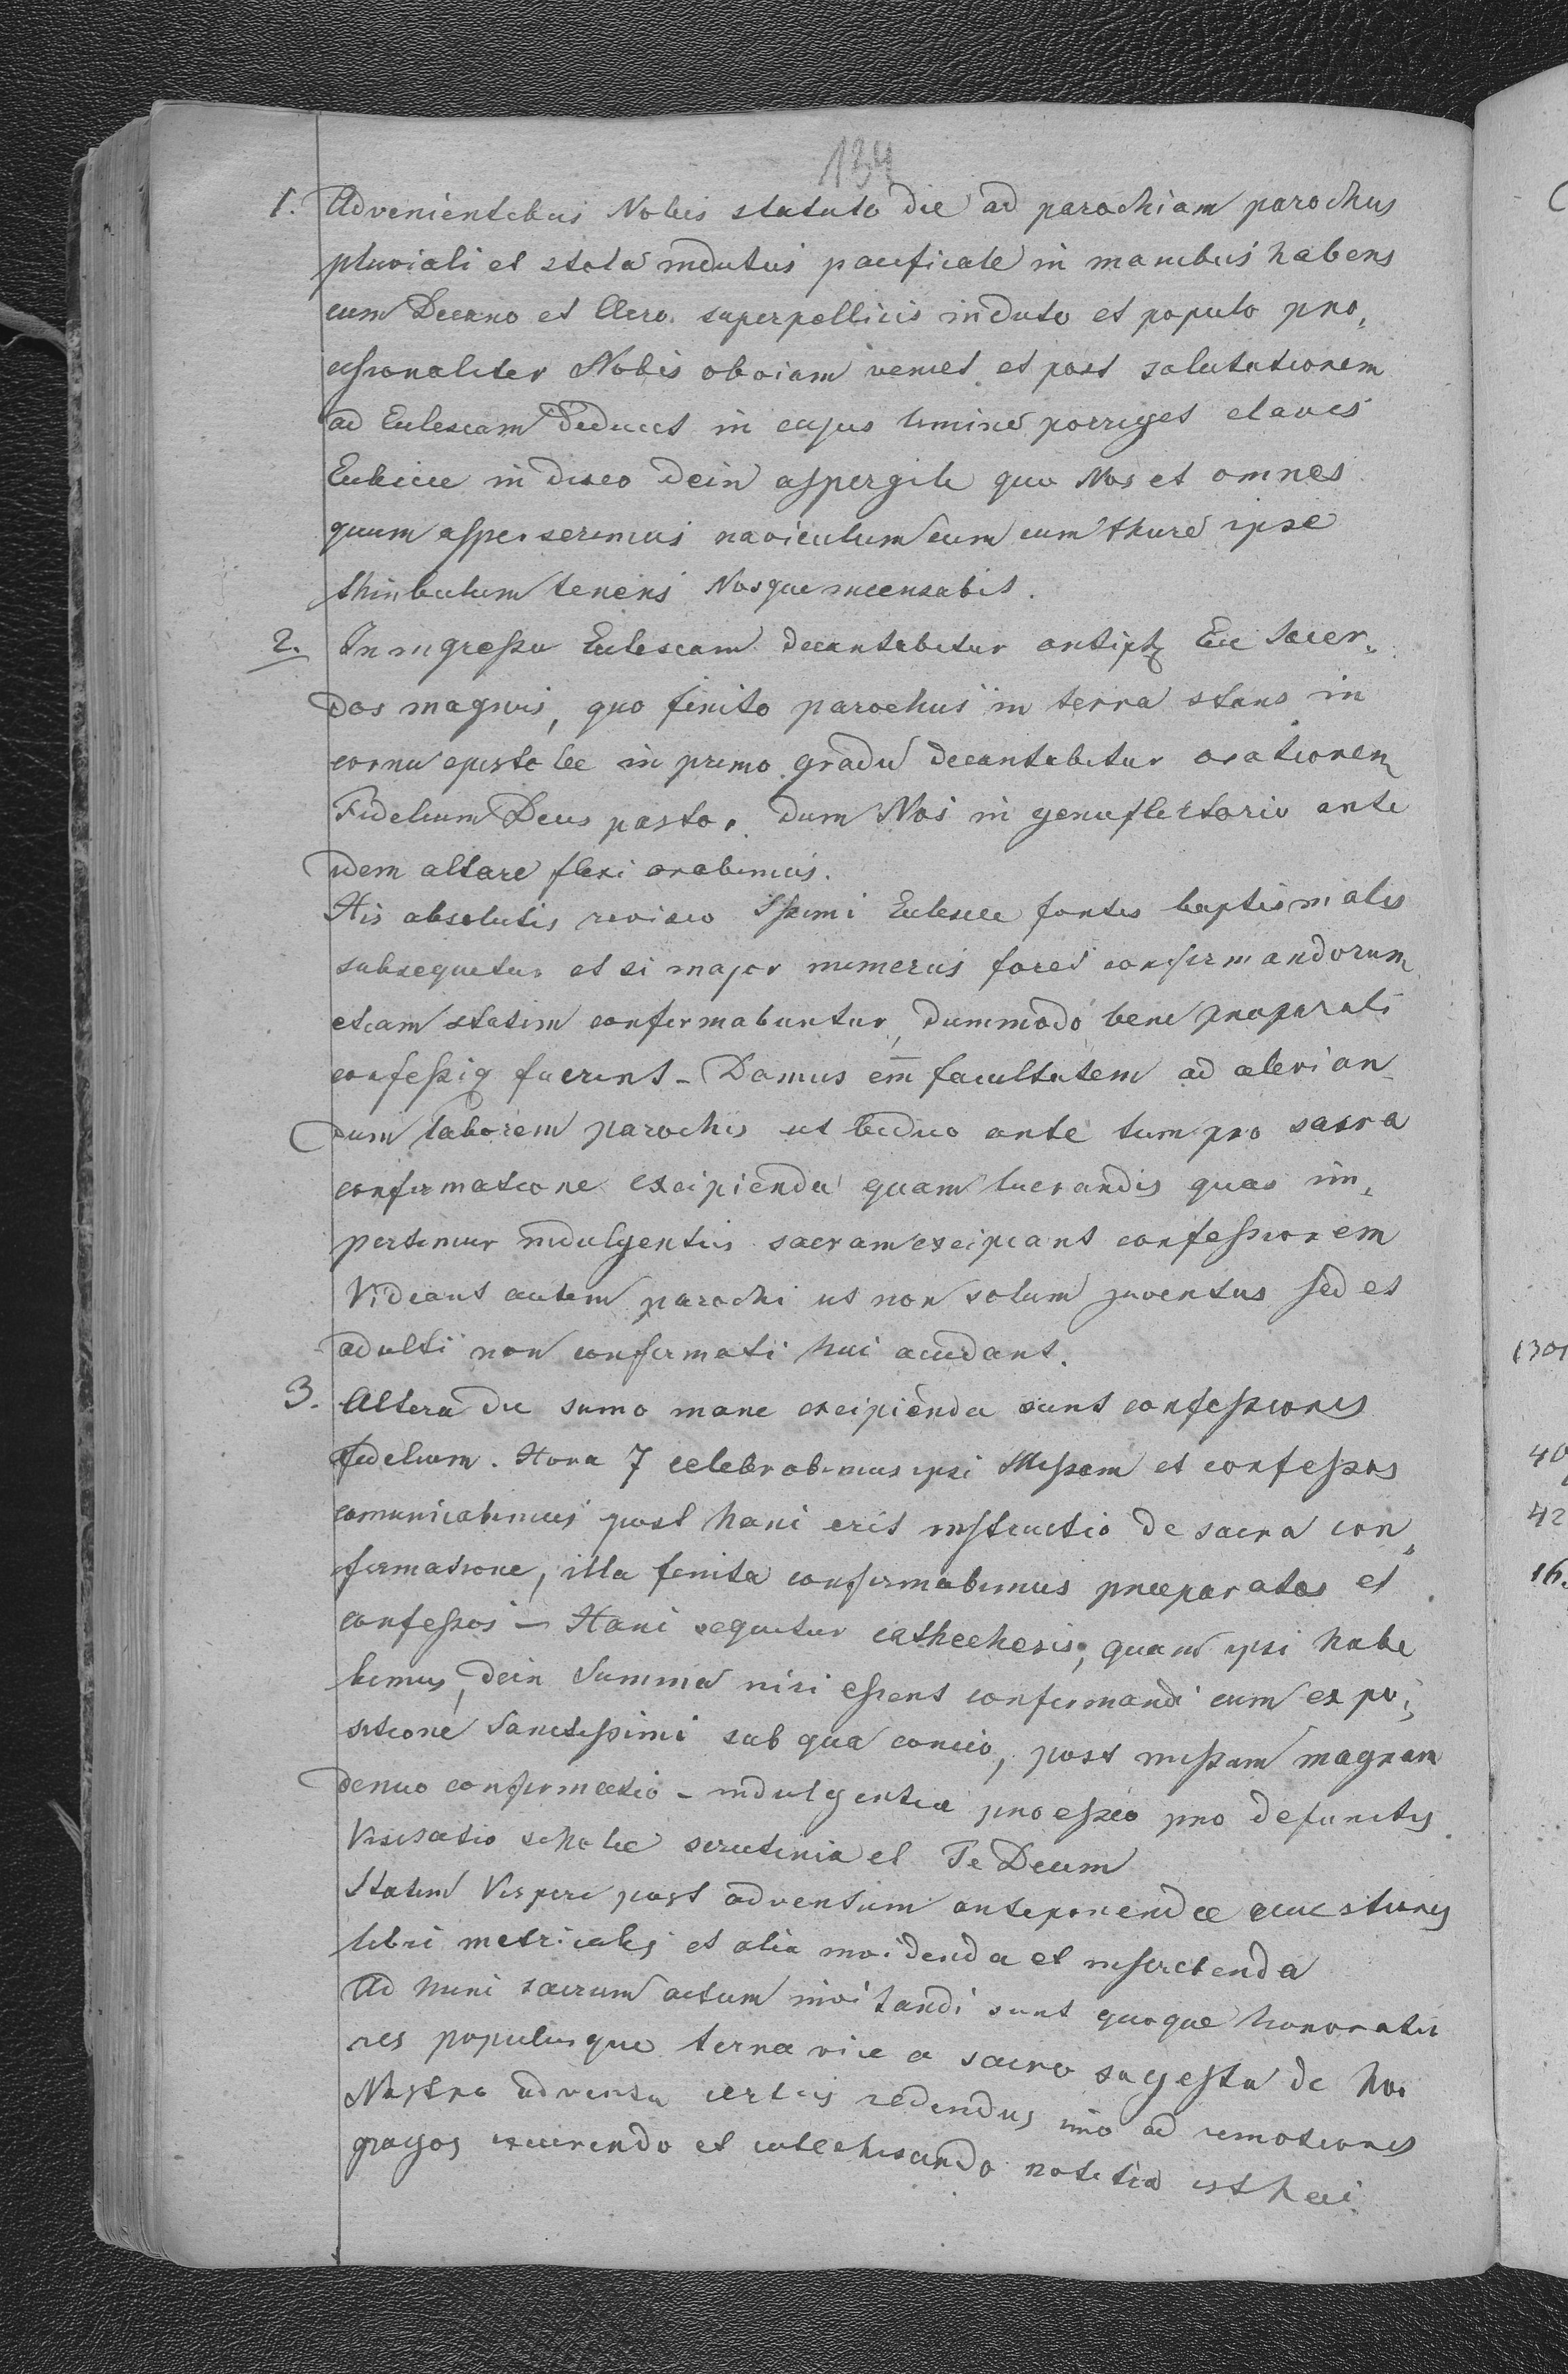 134
1. Advenientibus Nobis statuto die ad parochiam parochus
pluviali et stola indutus pacificale in manibus habens
cum Decano et Clero superpelliciis induto et populo pro,
cessionaliter Nobis obviam veniet et post salutationem
ad Ecclesiam deducet in cujus limine porriget claves
Ecclesiae in disco dein aspergile quo Nos et omnes
quum asperserimus naviculum cum thure ipse
thuribulum tenens Nosque incensabit.
2. In ingressu Ecclesiam decantabitur antiph Ecce Sacer,
dos magnus, quo finito parochus in terra stans in
cornu epistolae in primo gradu decantabitur orationem
Fidelium Deus pastor dum Nos in genuflectorio ante
idem altare flexi orabimus.
His absolutis revisio Ssmi Ecclesiae fontis baptismalis
subsequetur et si major numerus foret confirmandorum
etiam statim confirmabuntur, dummodo bene praeparati
confessiq fuerint - Damus em̄ facultatem ad alevian
dum laborem parochis ut biduo ante tum pro sacra
confirmatione excipienda quam lucrandis quas im,
pertimur indulgentiis sacram excipiant confessionem
Videant autem parochi ut non solum juventus sed et
adulti non confirmati huc accedant.
3. Altera die sumo mane excipienda sunt confessiones
fidelium. Hora 7 celebrabimus ipsi Missam et confessos
comunicabimus post hanc erit instructio de sacra con,
firmatione, illa finita confirmabimus praeparatos et
confessos - Hanc sequetur cathechesis, quam ipsi habe
bimus, dein Summa nisi essent confirmandi cum expo,
sitione Sanctissimi sub qua concio, post missam magnam
denuo confirmatio - indulgentia processio pro defunctis
Visitatio scholae scrutinia et Te Deum
Statim Vespere post adventum anteponendae quaestiones
libri metricales et alia invidenda et
Ad hunc sacrum actum invitandi sunt quoque honoratio
res populusque terna vice a sacro sugestu de hoc
Nostro adventu certus redendus imo ad remotiores
pagos excurendo et catechisando notitia est huic
1301
40
42
16.